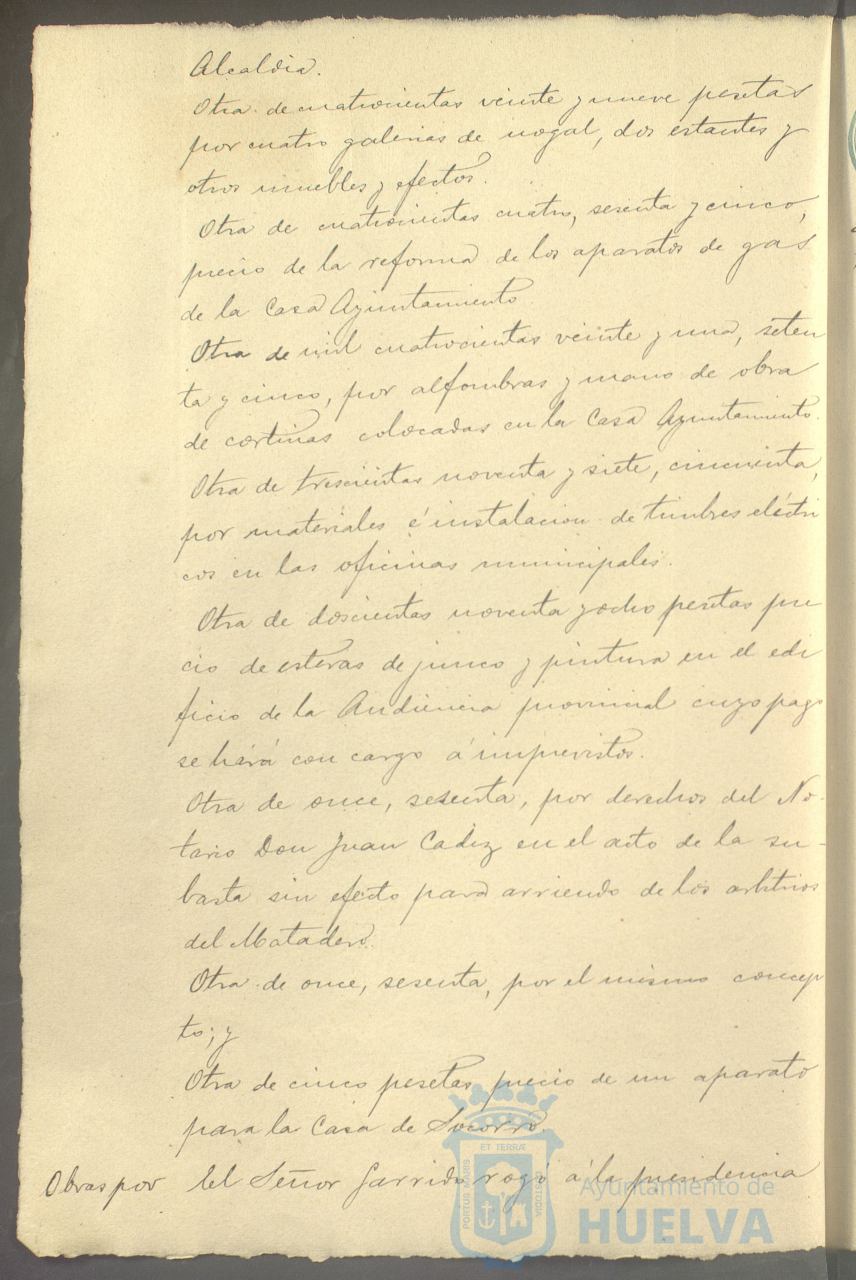 Alcaldia.
Otra de cuatrocientas veinte y nueve pesetas
por cuatro galerias de nogal, dos estantes y
otros muebles y efectos.
Otra de cuatrocientas cuatro, sesenta y cinco,
precio de la reforma de los aparatos de gas
de la Casa Ayuntamiento
Otra de mil cuatrocientas veinte y una, seten
ta y cinco, por alfombras y mano de obra
de cortinas colocadas en la Casa Ayuntamiento.
Otra de trescientas noventa y siete, cincuenta,
por materiales é instalacion de timbres eléctri
cos en las oficinas municipales.
Otra de doscientas noventa y ocho pesetas pre
cio de esteras de junco y pintura en el edi
ficio de la Audiencia provincial cuyo pago
se hará con cargo á imprevistos.
Otra de once, sesenta, por derechos del No-
tario Don Juan Cadiz en el acto de la su-
basta sin efecto para arriendo de los arbitrios
del Matadero.
Otra de once, sesenta, por el mismo concep
to; y
Otra de cinco pesetas precio de un aparato
para la Casa de Socorro.
Obras por El Señor Garrido rogó á la presidencia
PORTUS MARIS ET TERRÆ CUSTODIA
Ayuntamiento de
HUELVA